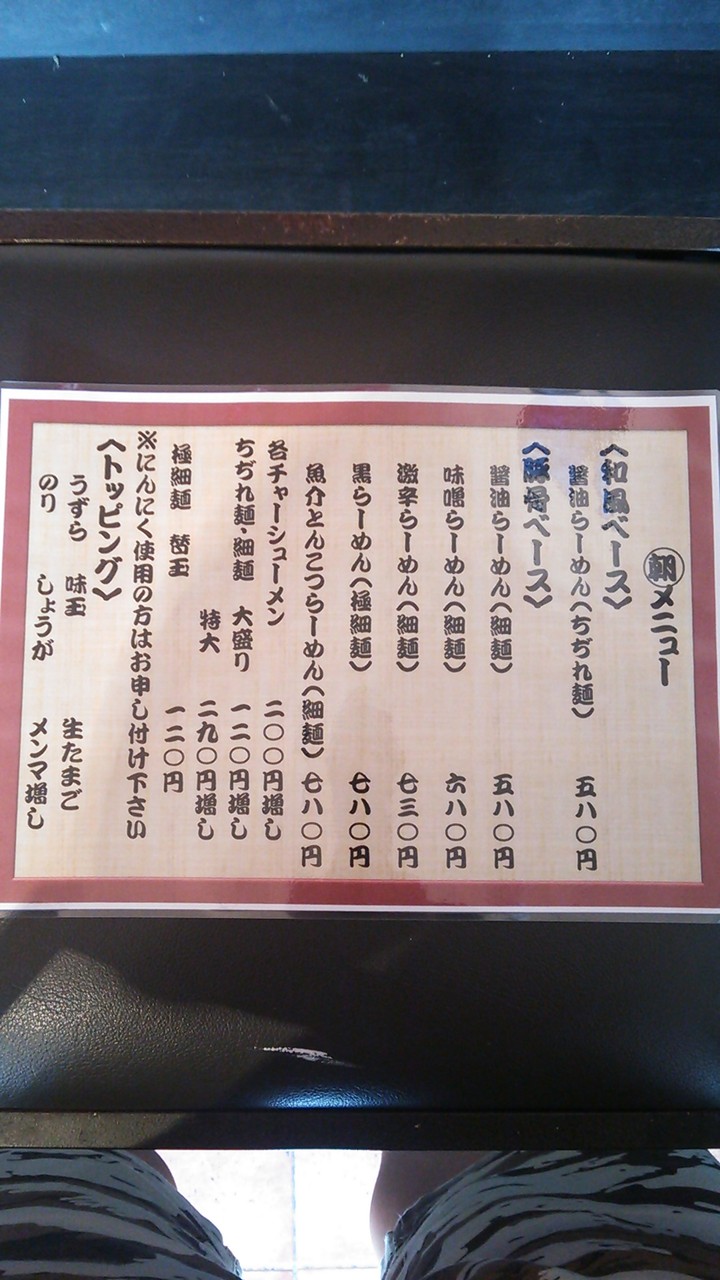 朝メニュー
〈和風ベース〉
醤油らーめん〈ちぢれ麺〉 五八〇円
〈豚骨ベース〉
醤油らーめん〈細麺〉 五八〇円
味噌らーめん〈細麺〉 六八〇円
激辛らーめん〈細麺〉 七三〇円
黒らーめん〈極細麺〉 七八〇円
魚介とんこつらーめん〈細麺〉 七八〇円
各チャーシューメン 二〇〇円増し
ちぢれ麺・細麺 大盛り 一二〇円増し
特大 二九〇円増し
極細麺 替玉 一二〇円
※にんにく使用の方はお申し付け下さい
〈トッピング〉
うずら 味玉 生たまご
のり しょうが メンマ増し